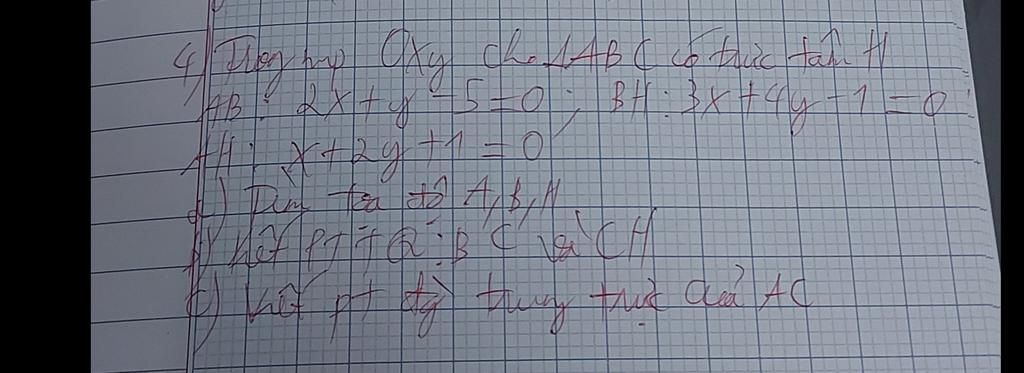 4) Trong mp Oxy cho ΔABC có trực tâm H
AB: 2x+y-5=0; BH: 3x+4y-1=0
AH: x+2y+1=0
a) Tìm tọa độ A, B, H
b) Viết ptTQ: BC và CH
c) Viết pt đg trung trực của AC